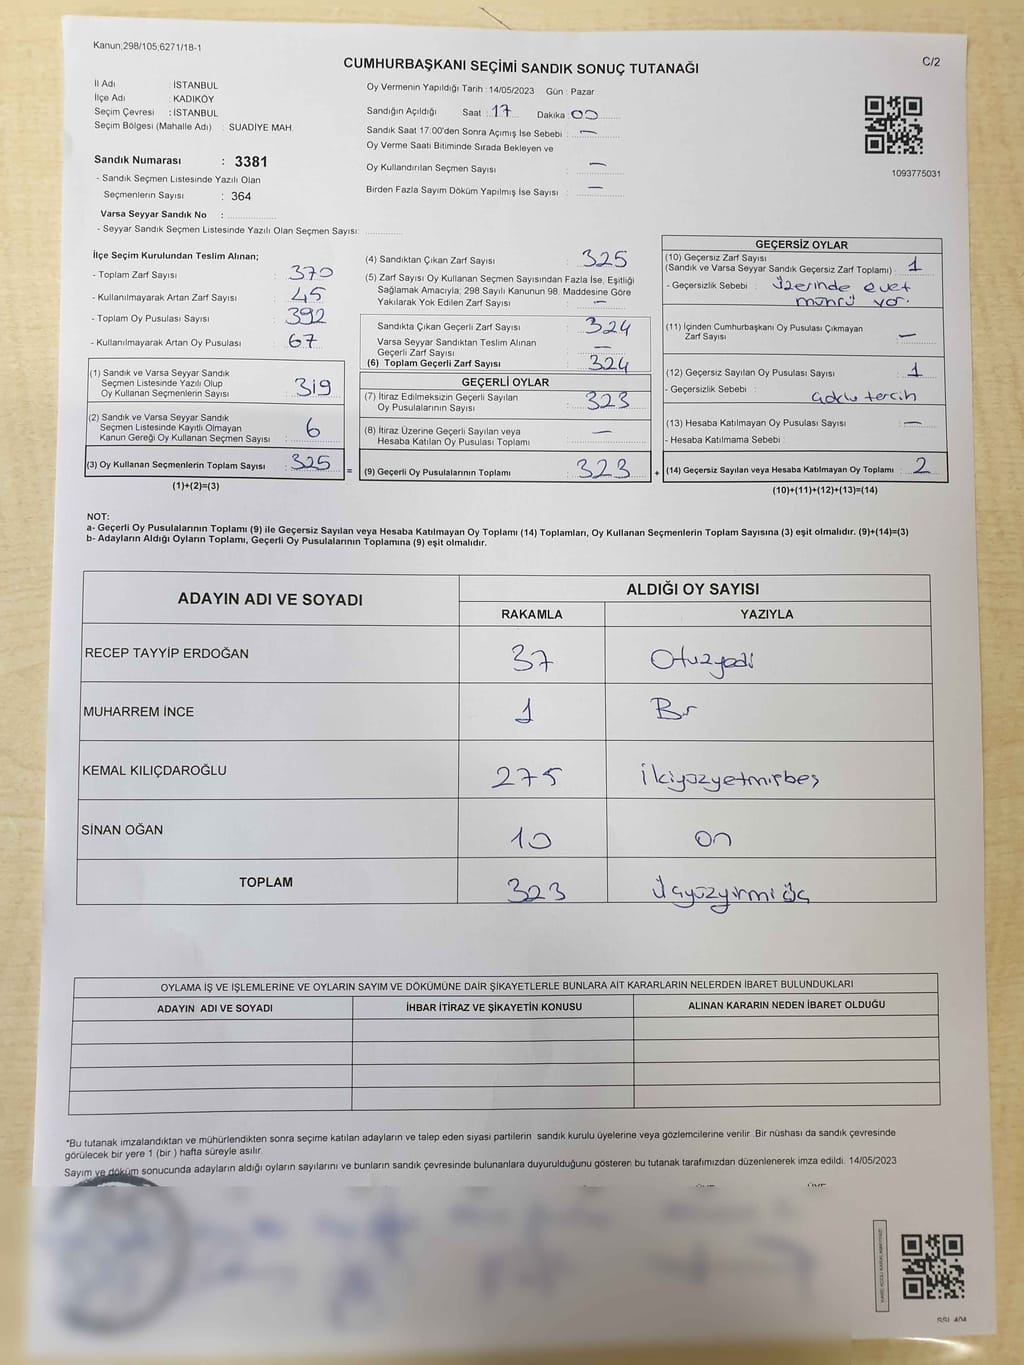 Kanun;298/105;6271/18-1
C/2
CUMHURBAŞKANI SEÇİMİ SANDIK SONUÇ TUTANAĞI
İl Adı : İSTANBUL
İlçe Adı : KADIKÖY
Seçim Çevresi : İSTANBUL
Seçim Bölgesi (Mahalle Adı) : SUADİYE MAH.
Sandık Numarası : 3381
- Sandık Seçmen Listesinde Yazılı Olan
Seçmenlerin Sayısı : 364
Varsa Seyyar Sandık No :
- Seyyar Sandık Seçmen Listesinde Yazılı Olan Seçmen Sayısı:
Oy Vermenin Yapıldığı Tarih : 14/05/2023 Gün : Pazar
Sandığın Açıldığı Saat : 17 Dakika : 00
Sandık Saat 17:00'den Sonra Açımış İse Sebebi : —
Oy Verme Saati Bitiminde Sırada Bekleyen ve
Oy Kullandırılan Seçmen Sayısı : —
Birden Fazla Sayım Döküm Yapılmış İse Sayısı : —
1093775031
İlçe Seçim Kurulundan Teslim Alınan;
- Toplam Zarf Sayısı : 370
- Kullanılmayarak Artan Zarf Sayısı : 45
- Toplam Oy Pusulası Sayısı : 392
- Kullanılmayarak Artan Oy Pusulası : 67
(1) Sandık ve Varsa Seyyar Sandık
Seçmen Listesinde Yazılı Olup
Oy Kullanan Seçmenlerin Sayısı : 319
(2) Sandık ve Varsa Seyyar Sandık
Seçmen Listesinde Kayıtlı Olmayan
Kanun Gereği Oy Kullanan Seçmen Sayısı : 6
(3) Oy Kullanan Seçmenlerin Toplam Sayısı : 325
(1)+(2)=(3)
=
(4) Sandıktan Çıkan Zarf Sayısı : 325
(5) Zarf Sayısı Oy Kullanan Seçmen Sayısından Fazla İse, Eşitliği
Sağlamak Amacıyla; 298 Sayılı Kanunun 98. Maddesine Göre
Yakılarak Yok Edilen Zarf Sayısı : —
Sandıkta Çıkan Geçerli Zarf Sayısı : 324
Varsa Seyyar Sandıktan Teslim Alınan
Geçerli Zarf Sayısı : —
(6) Toplam Geçerli Zarf Sayısı : 324
GEÇERLİ OYLAR
(7) İtiraz Edilmeksizin Geçerli Sayılan
Oy Pusulalarının Sayısı : 323
(8) İtiraz Üzerine Geçerli Sayılan veya
Hesaba Katılan Oy Pusulası Toplamı : —
(9) Geçerli Oy Pusulalarının Toplamı : 323
+
GEÇERSİZ OYLAR
(10) Geçersiz Zarf Sayısı
(Sandık ve Varsa Seyyar Sandık Geçersiz Zarf Toplamı) : 1
- Geçersizlik Sebebi : Üzerinde evet
mührü var.
(11) İçinden Cumhurbaşkanı Oy Pusulası Çıkmayan
Zarf Sayısı : —
(12) Geçersiz Sayılan Oy Pusulası Sayısı : 1
- Geçersizlik Sebebi : Çoklu tercih
(13) Hesaba Katılmayan Oy Pusulası Sayısı : —
- Hesaba Katılmama Sebebi :
(14) Geçersiz Sayılan veya Hesaba Katılmayan Oy Toplamı : 2
(10)+(11)+(12)+(13)=(14)
NOT:
a- Geçerli Oy Pusulalarının Toplamı (9) ile Geçersiz Sayılan veya Hesaba Katılmayan Oy Toplamı (14) Toplamları, Oy Kullanan Seçmenlerin Toplam Sayısına (3) eşit olmalıdır. (9)+(14)=(3)
b- Adayların Aldığı Oyların Toplamı, Geçerli Oy Pusulalarının Toplamına (9) eşit olmalıdır.
ADAYIN ADI VE SOYADI
ALDIĞI OY SAYISI
RAKAMLA YAZIYLA
RECEP TAYYİP ERDOĞAN 37 Otuzyedi
MUHARREM İNCE 1 Bir
KEMAL KILIÇDAROĞLU 275 İkiyüzyetmişbeş
SİNAN OĞAN 10 on
TOPLAM 323 Üçyüzyirmi üç
OYLAMA İŞ VE İŞLEMLERİNE VE OYLARIN SAYIM VE DÖKÜMÜNE DAİR ŞİKAYETLERLE BUNLARA AİT KARARLARIN NELERDEN İBARET BULUNDUKLARI
ADAYIN ADI VE SOYADI İHBAR İTİRAZ VE ŞİKAYETİN KONUSU ALINAN KARARIN NEDEN İBARET OLDUĞU
*Bu tutanak imzalandıktan ve mühürlendikten sonra seçime katılan adayların ve talep eden siyasi partilerin sandık kurulu üyelerine veya gözlemcilerine verilir. Bir nüshası da sandık çevresinde
görülecek bir yere 1 (bir) hafta süreyle asılır.
Sayım ve döküm sonucunda adayların aldığı oyların sayılarını ve bunların sandık çevresinde bulunanlara duyurulduğunu gösteren bu tutanak tarafımızdan düzenlenerek imza edildi. 14/05/2023